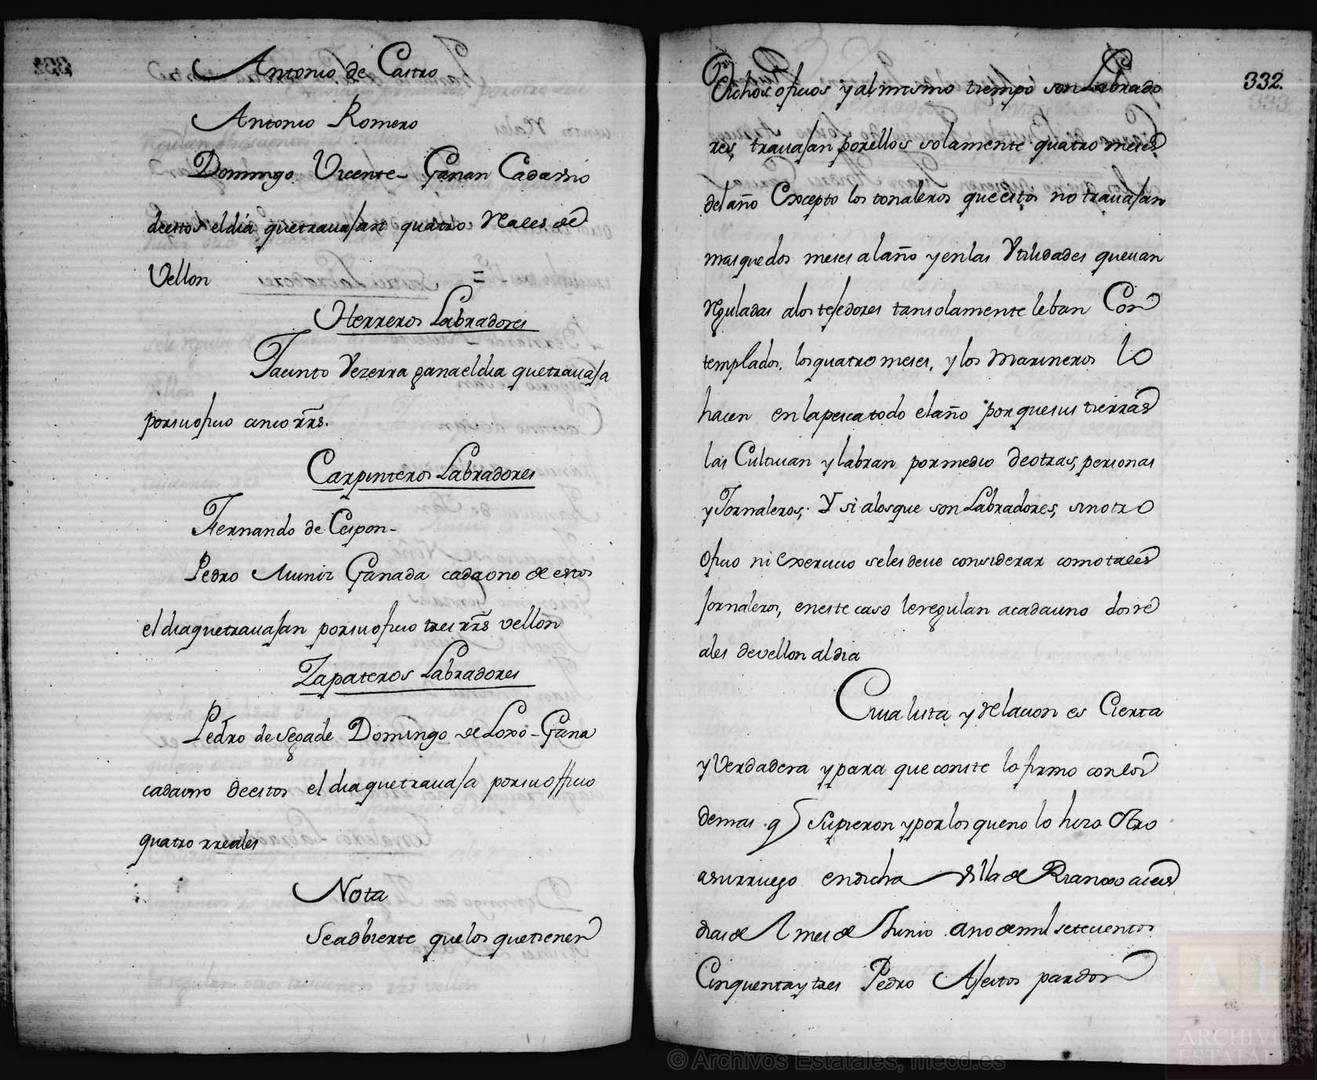 Antonio de Castro
Antonio Romero
Domingo Vicente Ganan Cadauno
destos el dia que trauajan quatro Reales de
Vellon =
Herreros Labradores
Jacinto Vezerra gana el dia que trauaja
por su ofizio cinco rrs.
Carpinteros Labradores
Fernando de Cespon
Pedro Muniz Ganada cada ono de estos
el dia que trauajan por su ofizio tres rrs vellon
Zapateros Labradores
Pedro de Segade Domingo de Loxo Gana
cada uno de estos el dia que trauaja por su offizio
quatro rreales
Nota
Se adbierte que los que tienen
332.
Dichos ofizios y al mismo tiempo son Labrado
res, trauajan por ellos solamente quatro meses
del año Excepto los tonaleros que estos no trauajan
mas que dos meses al año y en las Utilidades que uan
rreguladas a los tejedores tan solamente le ban Con
templados, los quatro meses, y los Marineros lo
hacen en la pesca todo el año por que sus tierras
las Cultiuan y labran por medio de otras personas
y Jornaleros, Y si a los que son Labradores, sin otro
ofizio ni exercicio se les deue considerar como tales
jornaleros, en este caso le regulan a cada uno dos re
ales de vellon al dia
Cuia lista y relacion es Cierta
y Verdadera y para que conste lo firmo con los
demas q supieron y por los que no lo hizo Otro
a su rruego en dicha Villa de Rianxo a seis
dias de l mes de Junio año de mil setecientos
Cinquenta y tres Pedro Alfeitos pardon
© Archivos Estatales, mecd.es
ARCHIVOS
ESTATALES